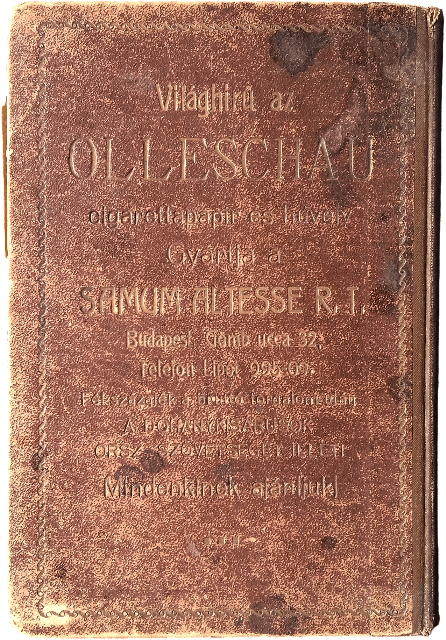 Világhirű az
OLLESCHAU
cigarettapapir és hüvely
Gyártja a
SAMUM ALTESSE R. T.
Budapest, Gömb ucca 32.
Telefon Lipót
A DOHÁNYKISÁRUSOK
ORSZ. SZÖVETSÉGÉT ILLETI
Mindenkinek ajánljuk!